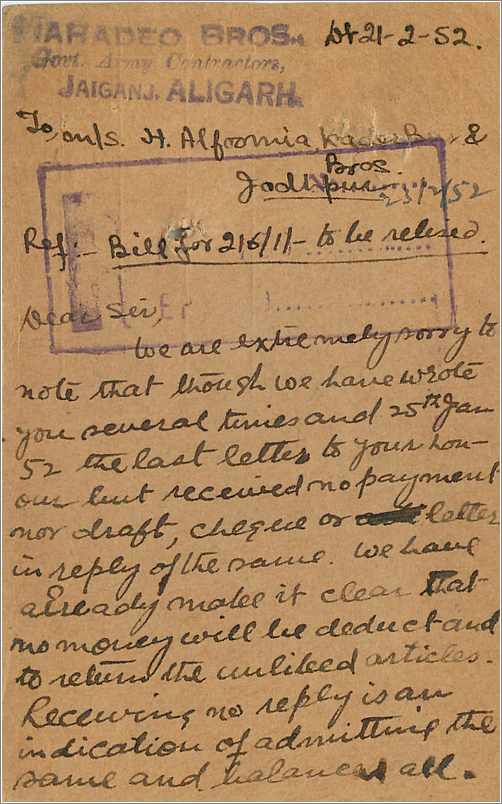 HARADEO BROS.,
Govt. Army Contractors,
JAIGANJ, ALIGARH.
Dt 21-2-52.
To, m/s. H. Alfromia, &
Bros.
Jodhpur
23/2/52
Ref:- Bill for 216/1/- to be relised.
Dear Sir,
We are extremely sorry to
note that though we have wrote
you several times and 25th Jan
52 the last letter to your hon-
our but received no payment
nor draft, cheque or letter
in reply of the same. We have
already make it clear that
no money will be deduct and
to return the unliked articles.
Receiving no reply is an
indication of admitting the
same and balances all.